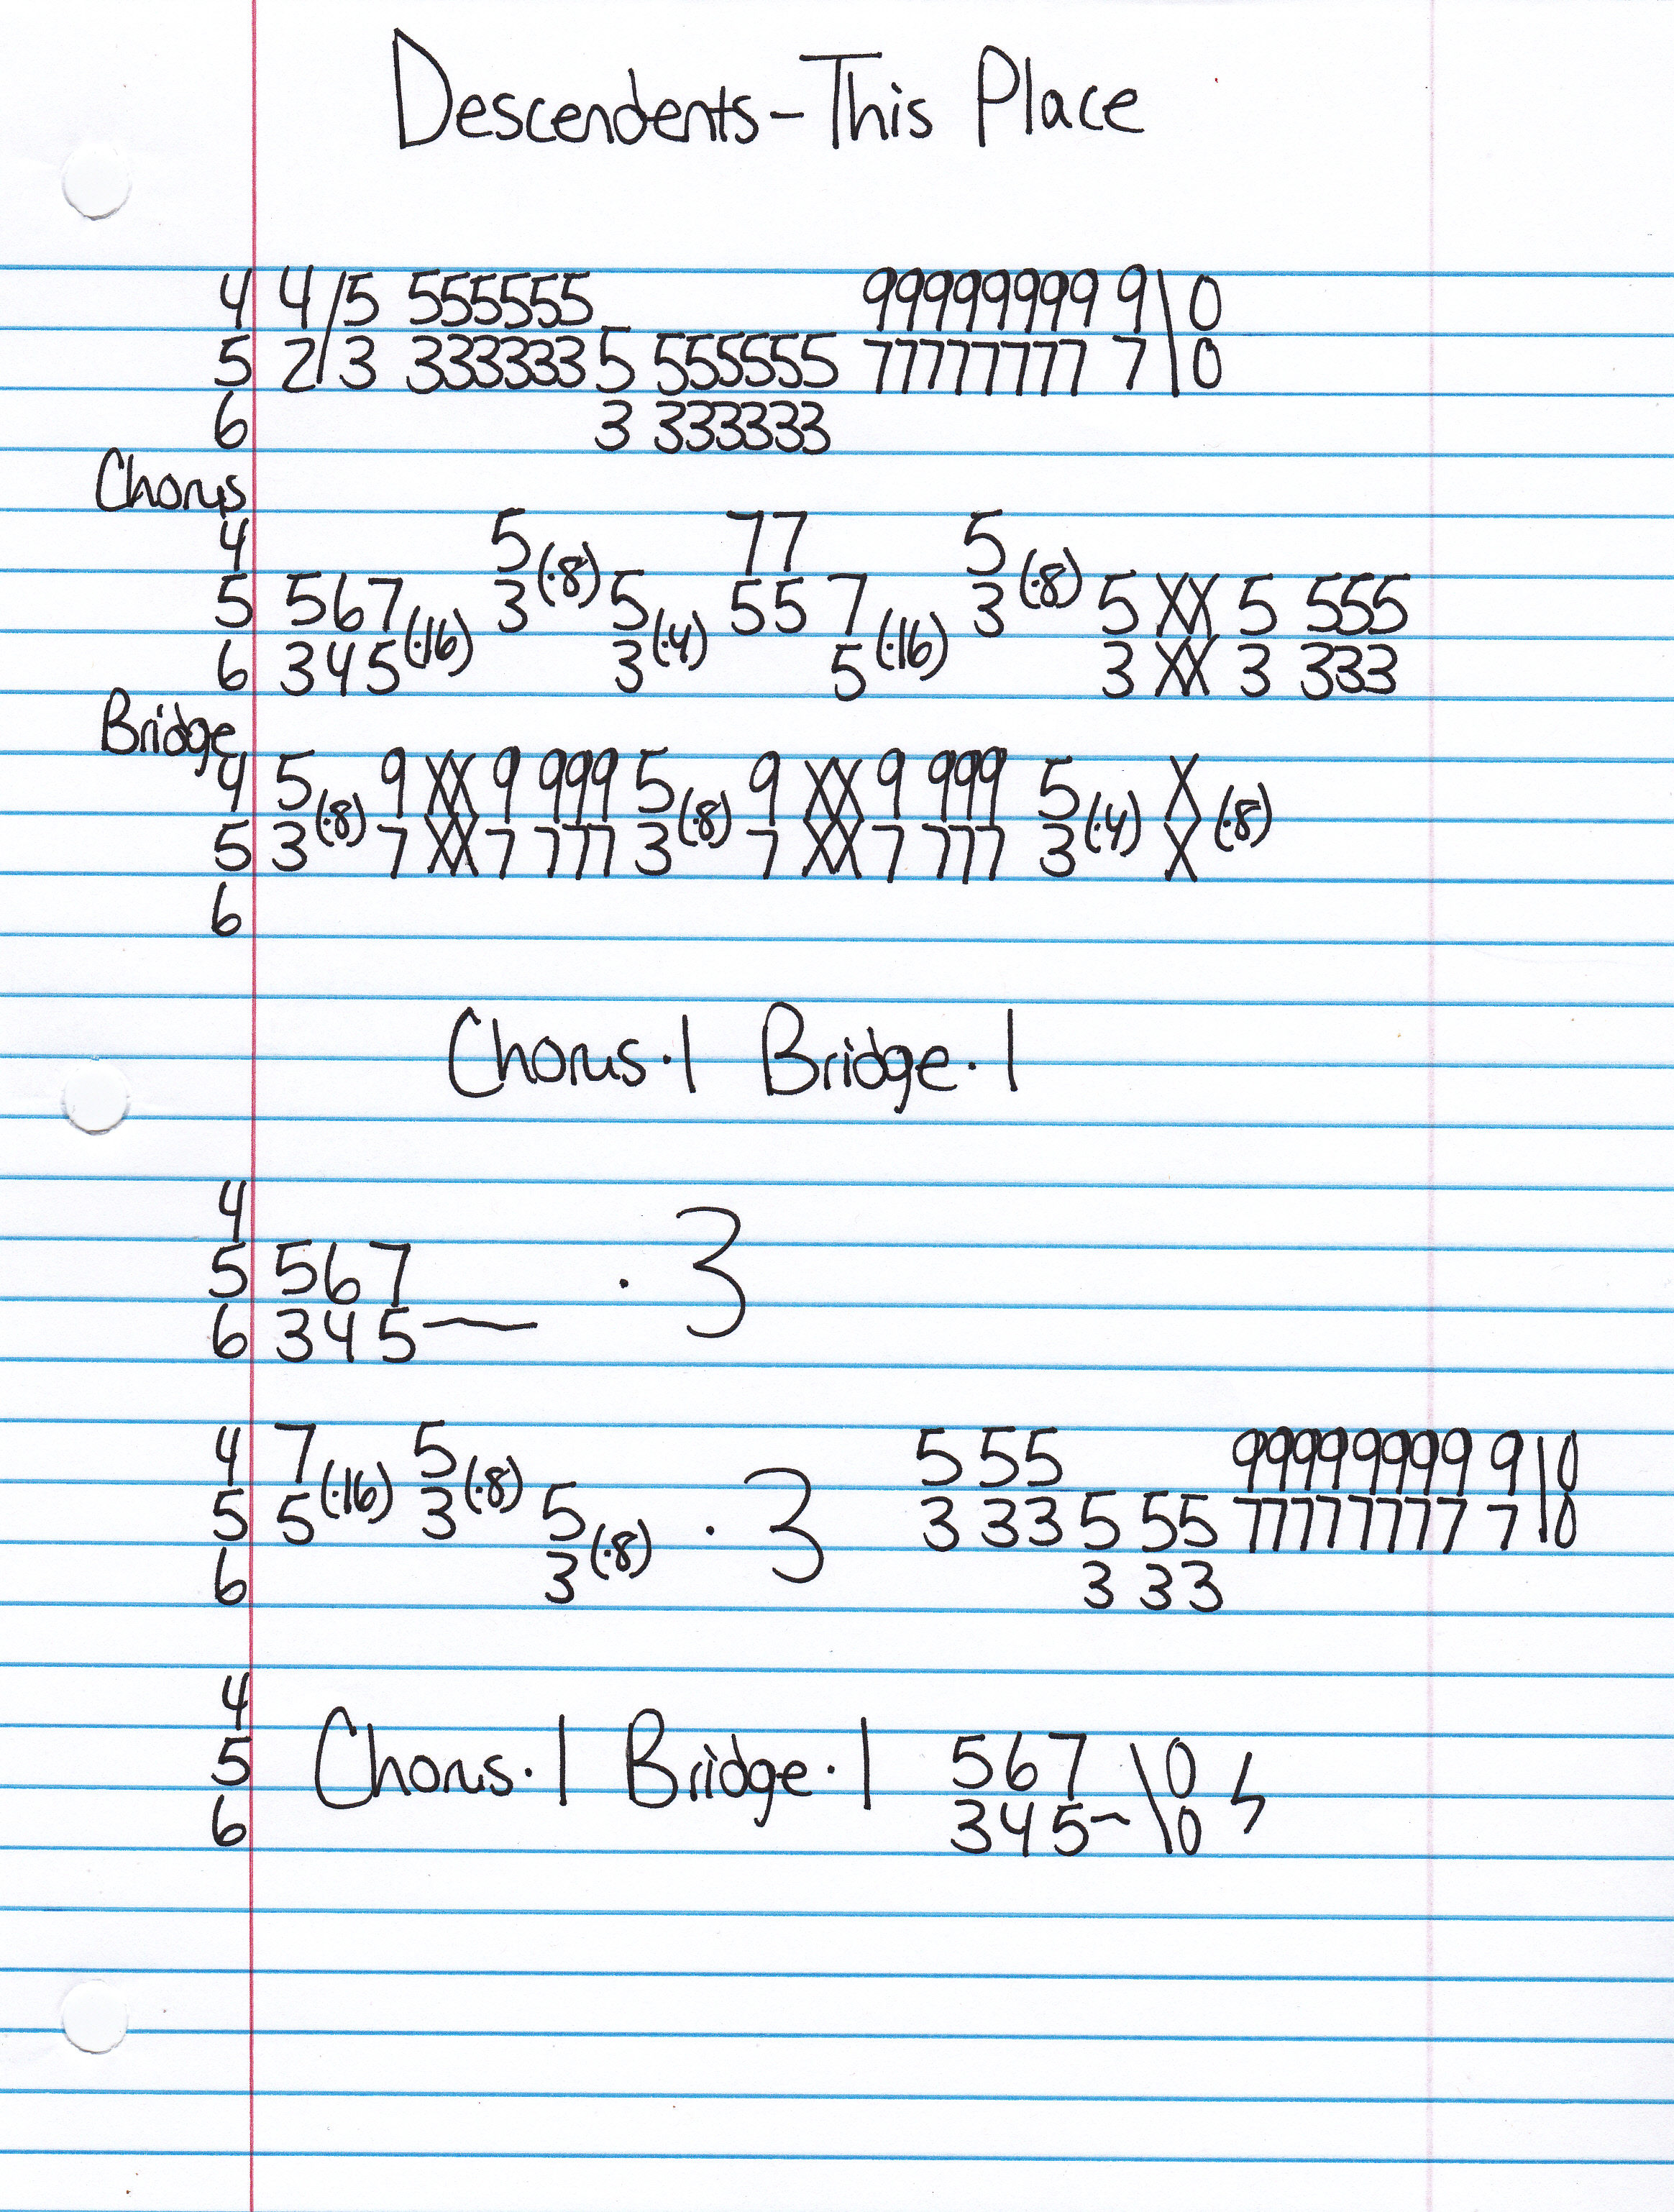 Descendents - This Place
4 4/5 555555 99999999 9\0
5 2/3 333333 5 555555 77777777 7\0
6 3 333333
Chorus
4 5 77 5
5 567 3(·8) 5 55 7 3(·8) 5 XX 5 555
6 345(·16) 3(·4) 5(·16) 3 XX 3 333
Bridge
4 5 9 XX 9 999 5 9 XX 9 999 5 X
5 3(·8) 7 XX 7 777 3(·8) 7 XX 7 777 3(·4) X(·8)
6
Chorus·1 Bridge·1
4
5 567 ·3
6 345~
4 7 5 5 55 99999999 9\0
5 5(·16) 3(·8) 5 ·3 3 33 5 55 77777777 7\0
6 3(·8) 3 33
4
5 Chorus·1 Bridge·1 567 \0
6 345~\0